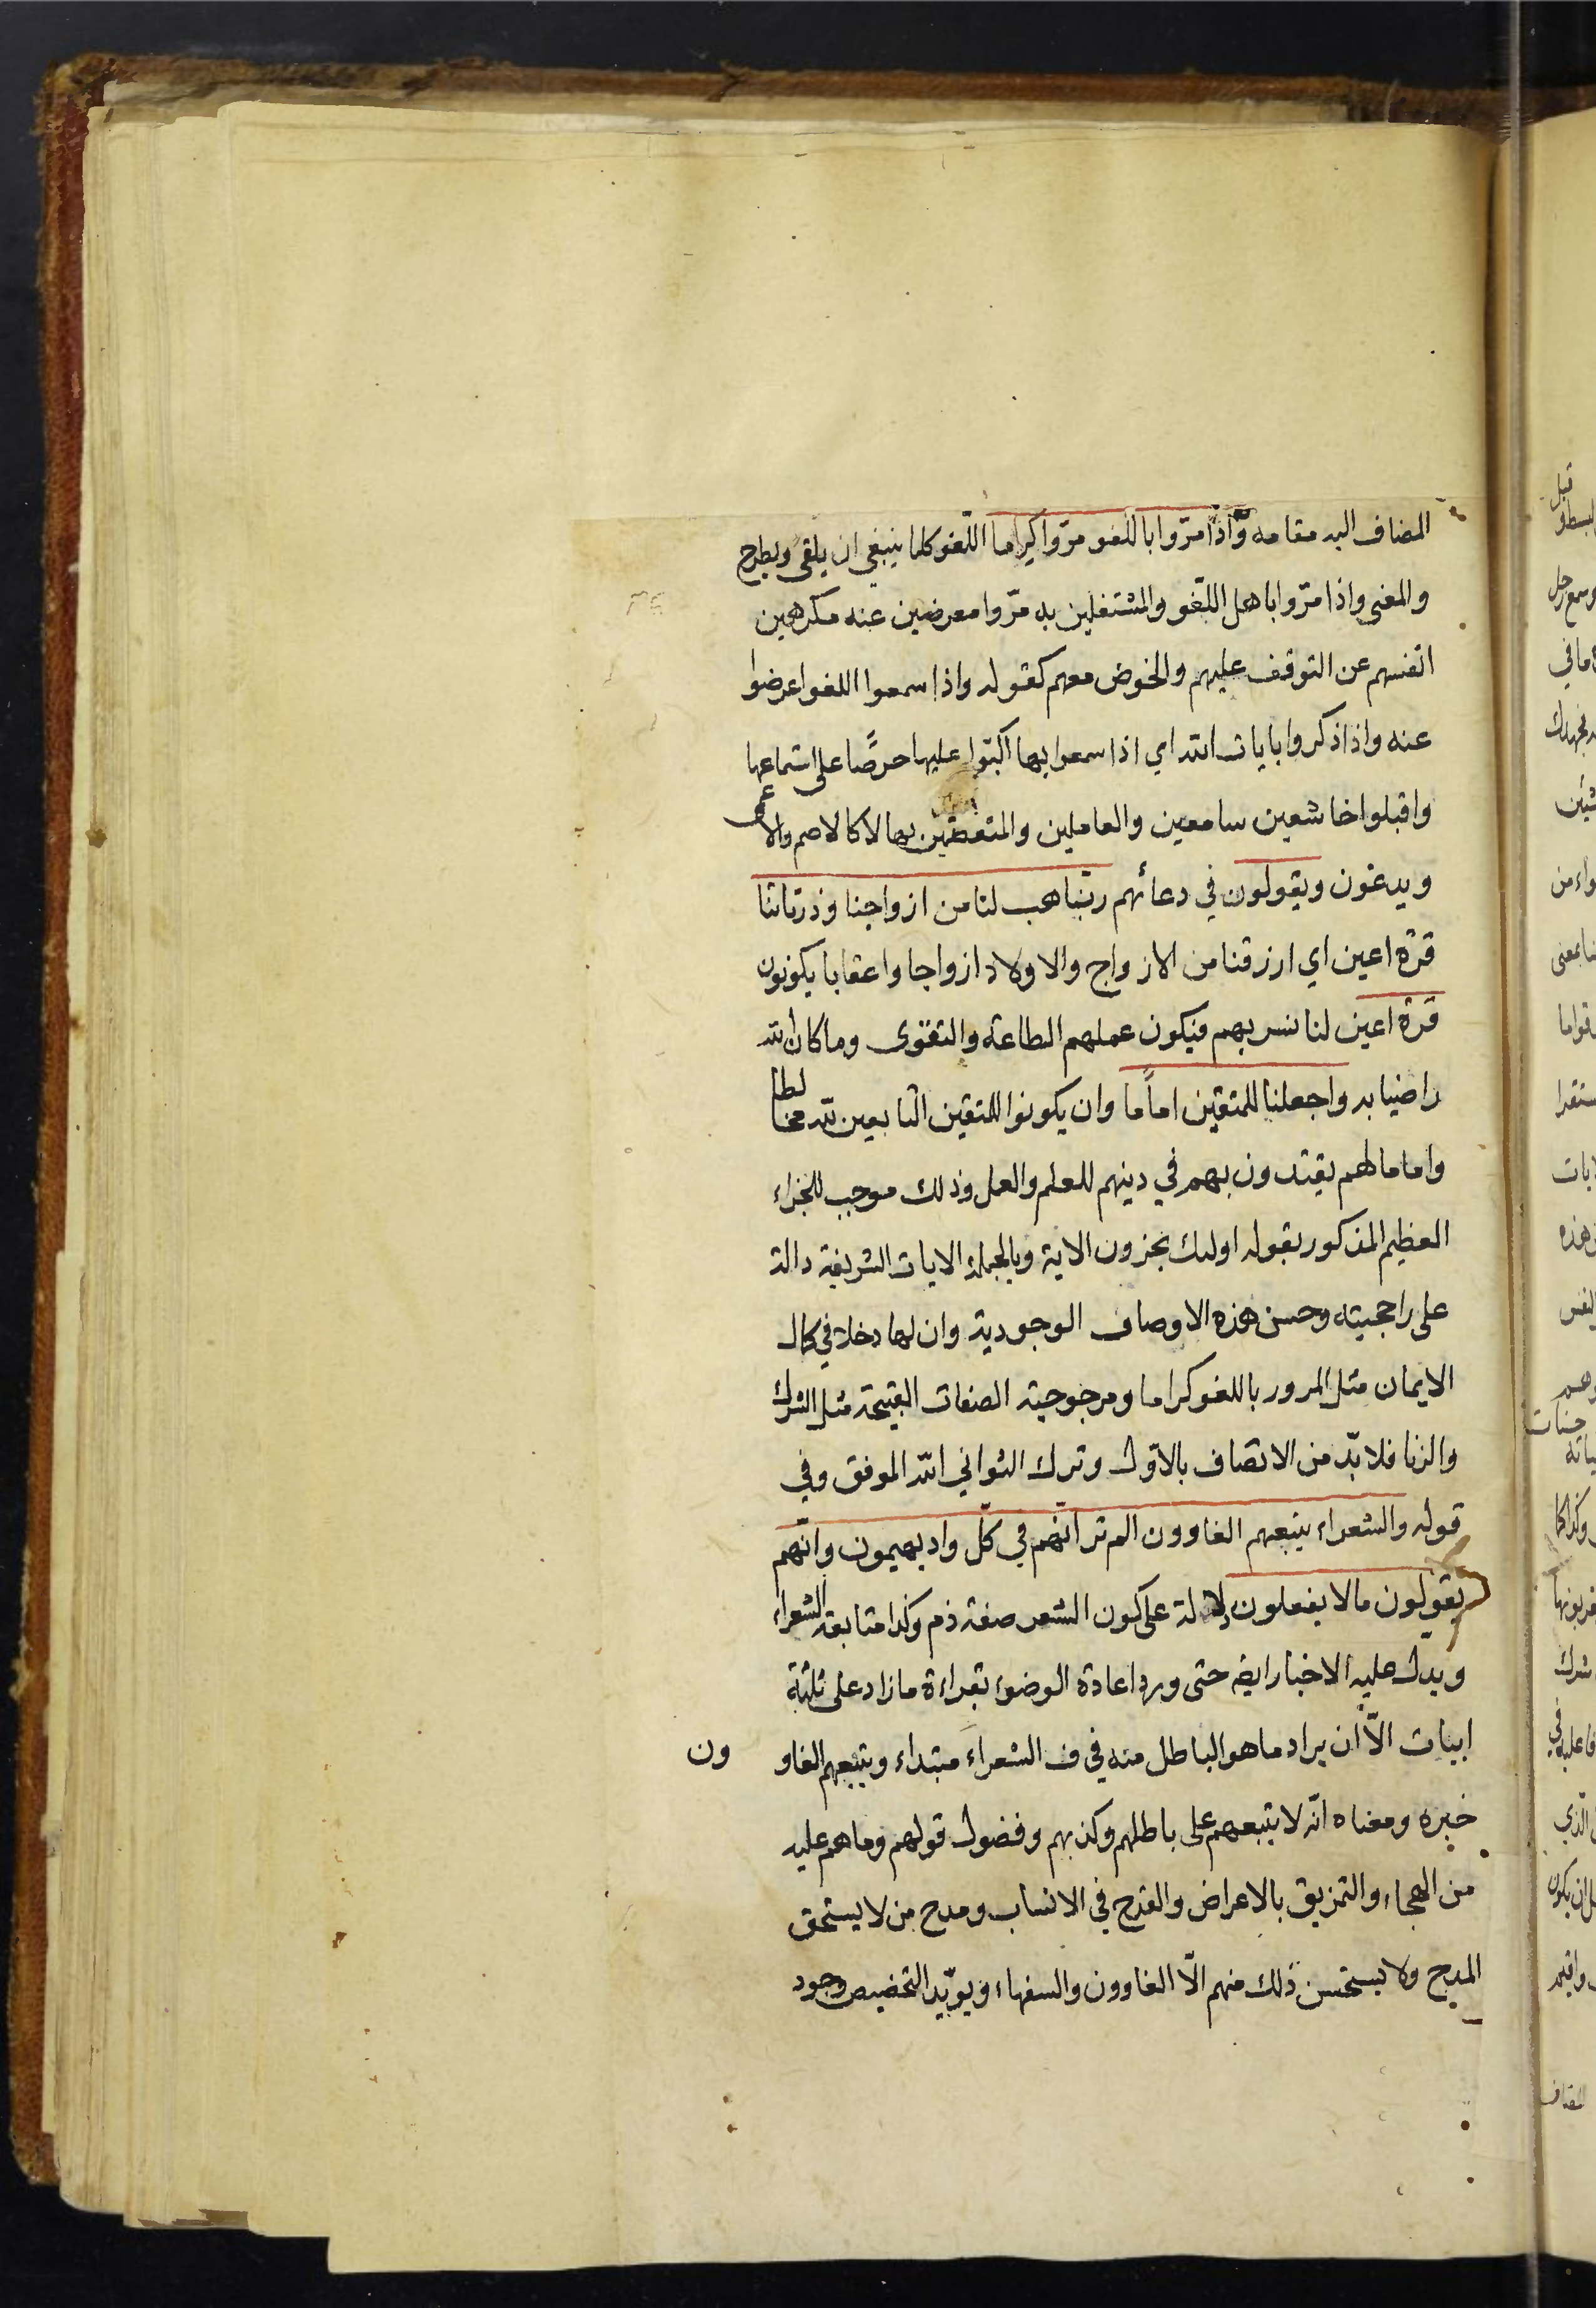 المضاف اليه مقامه وَّاذا مرّوا باللغو مرّوا كراما اللّغو كلما ينبغي ان يلقى ويطرح
والمعنى واذا مرّوا باهل اللّغو والمشتغلين به مرّوا معرضين عنه مكرهين
انفسهم عن التوقف عليهم والخوض معهم كقوله واذا سمعوا اللغو اعرضوا
عنه واذا ذكروا بايات الله اي اذا سمعوا بها اكبّوا عليها حرصًا على استماعها
واقبلوا خاشعين سامعين والعاملين والمتعظين بها لا كالاصم والاعمى
ويدعون ويقولون في دعائهم ربّنا هب لنا من ازواجنا وذرياتنا
قرّة اعين اي ارزقنا من الازواج والاولاد ازواجا واعقابا يكونون
قرّة اعين لنا نسر بهم فيكون عملهم الطاعة والتقوى وما كان الله
راضيا به واجعلنا للمتقين اماًما وان يكونوا للمتقين التابعين لله
واماما لهم يقتدون بهم في دينهم للعلم والعمل وذلك موجب للجزاء
العظيم المذكور بقوله اولئك يجزون الاية وبالجملة الايات الشريفة دالة
على راجحيته وحسن هذه الاوصاف الوجودية وان لها دخلا في كمال
الايمان مثل المرور باللغو كراما ومرجوحية الصفات القبيحة مثل الشرك
والزنا فلا بدّ من الاتصاف بالاوّل وترك الثواني الله الموفق وفي
قوله والشعراء يتبعهم الغاوون الم تر انّهم في كلّ واد يهيمون وانّهم
يقولون ما لا يفعلون دلالة على كون الشعر صفة ذم وكذا متابعة الشعراء
ويدلّ عليه الاخبار ايضا حتى ورد اعادة الوضوء بقراءة ما زاد على ثلثة
ابيات الاّ ان يراد ما هو الباطل منه في ف الشعراء مبتداء ويتبعهم الغاوون
خبره ومعناه انّه لا يتبعهم على باطلهم وكذبهم وفضول قولهم وما هم عليه
من الهجاء والتمزيق بالاعراض والقدح في الانساب ومدح من لا يستحق
المدح ولا يستحسن ذلك منهم الّا الغاوون والسفهاء ويؤيّد التخصيص وجود